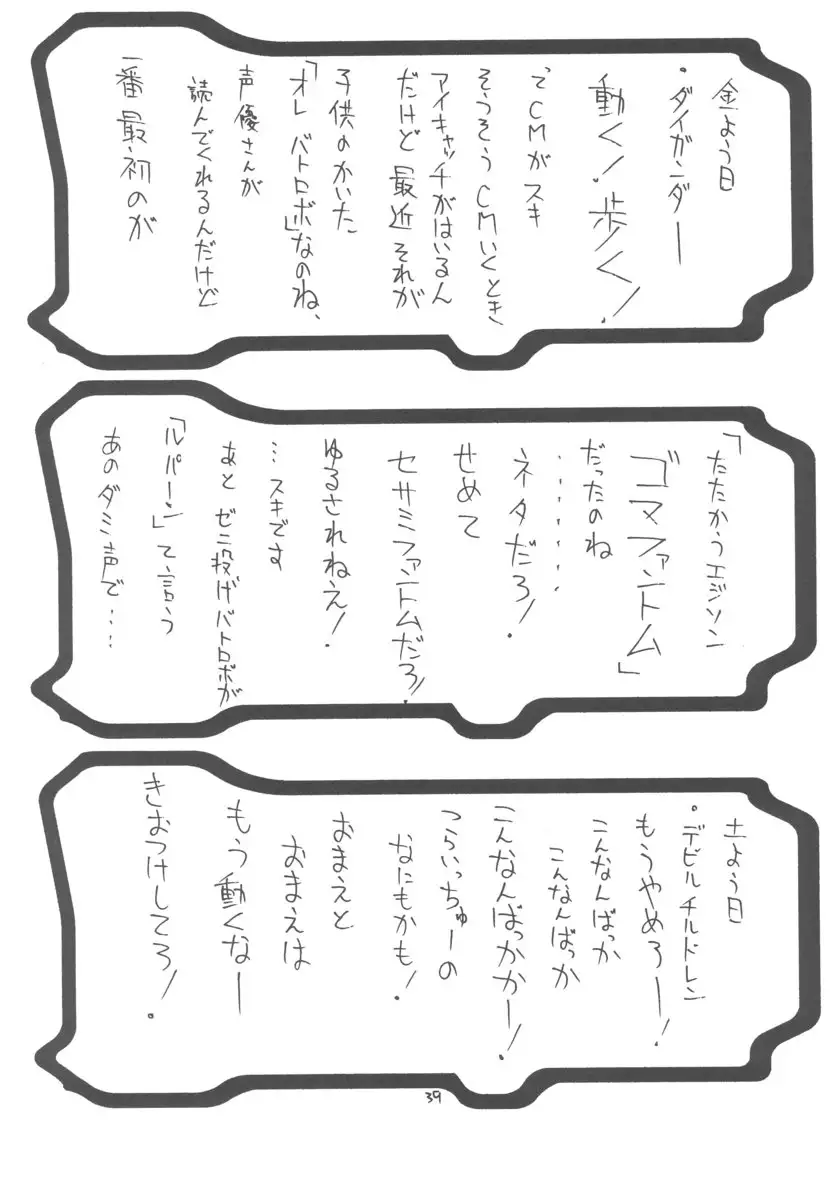 金よう日
・ダイガンダー
動く!歩く!
てCMがスキ
そうそうCMいくとき
アイキャッチがはいるん
だけど最近それが
子供のかいた
「オレバトロボ」なのね、
声優さんが
読んでくれるんだけど
一番最初のが
「たたかうエジソン
ゴマファントム」
だったのね
・・・・・・・・
ネタだろ!
せめて
セサミファントムだろ!
ゆるされねえ!
…スキです
あとゼニ投げバトロボが
「ルパーン」て言う
あのダミ声で‥‥
土よう日
・デビルチルドレン
もうやめろー!
こんなんばっか
こんなんばっか
こんなんばっかかー!
つらいっちゅーの
なにもかも!
おまえと
おまえは
もう動くなー
きおつけしてろ!
39